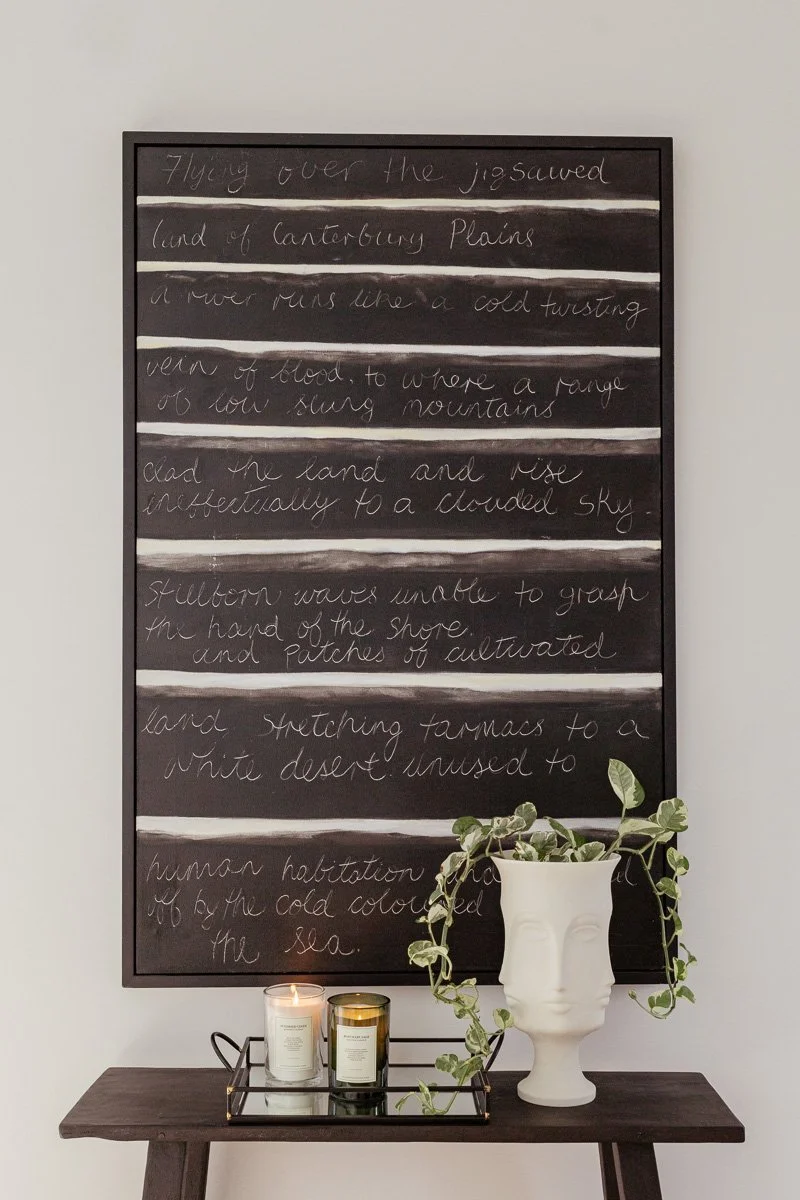 Flying over the jigsawed
land of Canterbury Plains
a river runs like a cold twisting
vein of blood. to where a range
of low slung mountains
clad the land and rise
ineffectually to a clouded sky.
Stillborn waves unable to grasp
the hand of the shore.
and patches of cultivated
land stretching tarmacs to a
white desert. unused to
human habitation
off by the cold
the sea.